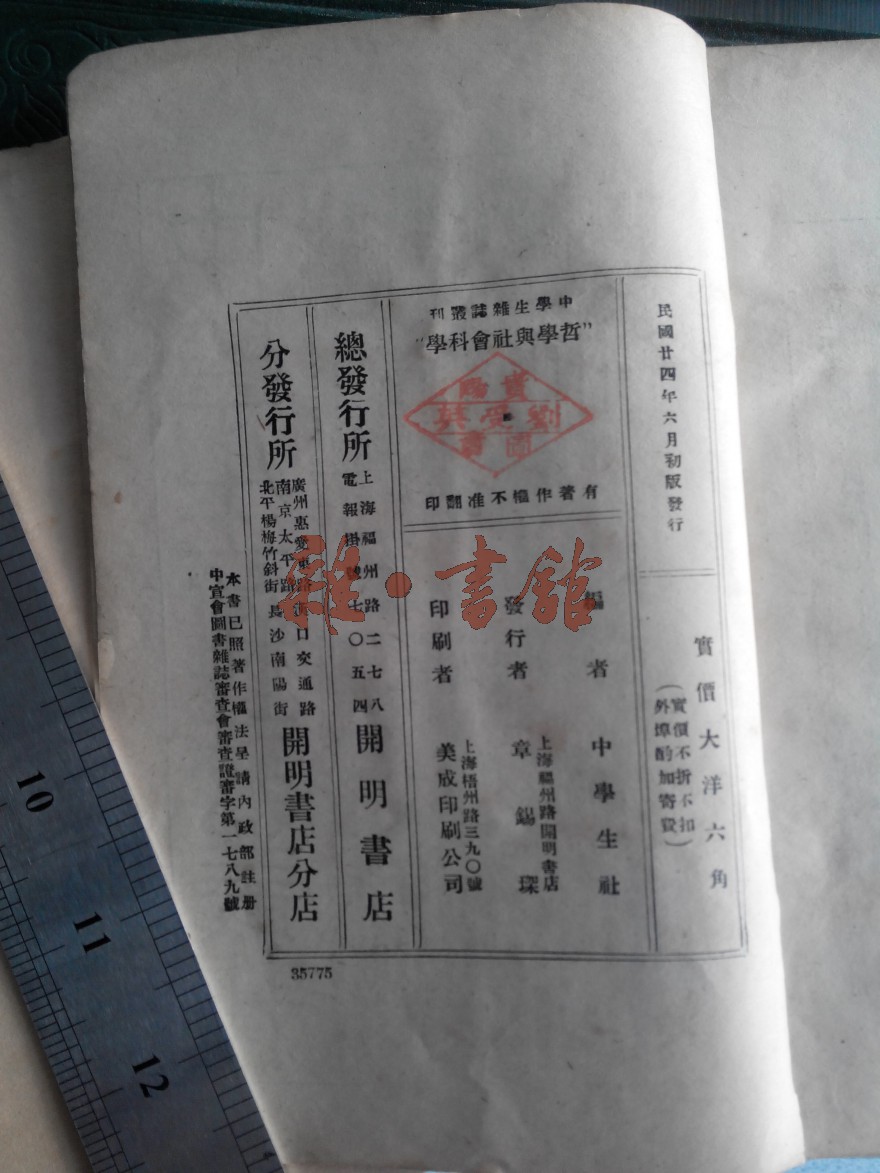 民國廿四年六月初版發行
實價大洋六角
（實價不折不扣
外埠酌加寄費）
中學生雜誌叢刊
“哲學與社會科學”
貴陽
劉受
圖書
有著作權不准翻印
編者 中學生社
發行者
上海福州路開明書店
章錫琛
印刷者
上海梧州路三九〇號
美成印刷公司
總發行所
上海福州路二七八
電報掛號七〇五四
開明書店
分發行所
廣州惠愛東路漢口交通路
南京太平路
北平楊梅竹斜街長沙南陽街
開明書店分店
本書已照著作權法呈請內政部註册
中宣會圖書雜誌審查會審查證審字第一七八九號
35775
雜·書館
10
11
12